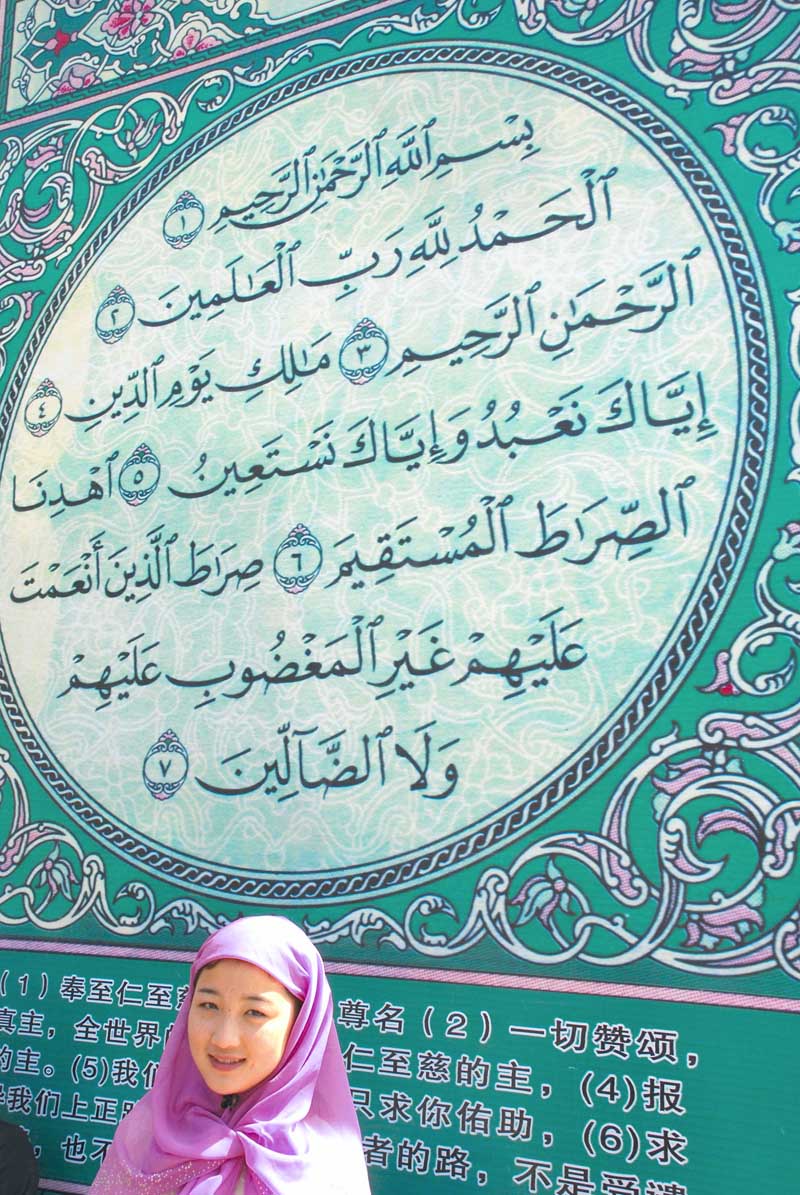 بِسْمِ ٱللَّهِ ٱلرَّحْمَٰنِ ٱلرَّحِيمِ ١
ٱلْحَمْدُ لِلَّهِ رَبِّ ٱلْعَٰلَمِينَ ٢
ٱلرَّحْمَٰنِ ٱلرَّحِيمِ ٣ مَٰلِكِ يَوْمِ ٱلدِّينِ ٤
إِيَّاكَ نَعْبُدُ وَإِيَّاكَ نَسْتَعِينُ ٥ ٱهْدِنَا
ٱلصِّرَٰطَ ٱلْمُسْتَقِيمَ ٦ صِرَٰطَ ٱلَّذِينَ أَنْعَمْتَ
عَلَيْهِمْ غَيْرِ ٱلْمَغْضُوبِ عَلَيْهِمْ
وَلَا ٱلضَّآلِّينَ ٧
(1) 奉至仁至慈 尊名 (2) 一切赞颂，
真主，全世界 仁至慈的主，(4)报
的主。(5)我们 只求你佑助，(6)求
我们上正路 者的路，不是受谴
也不